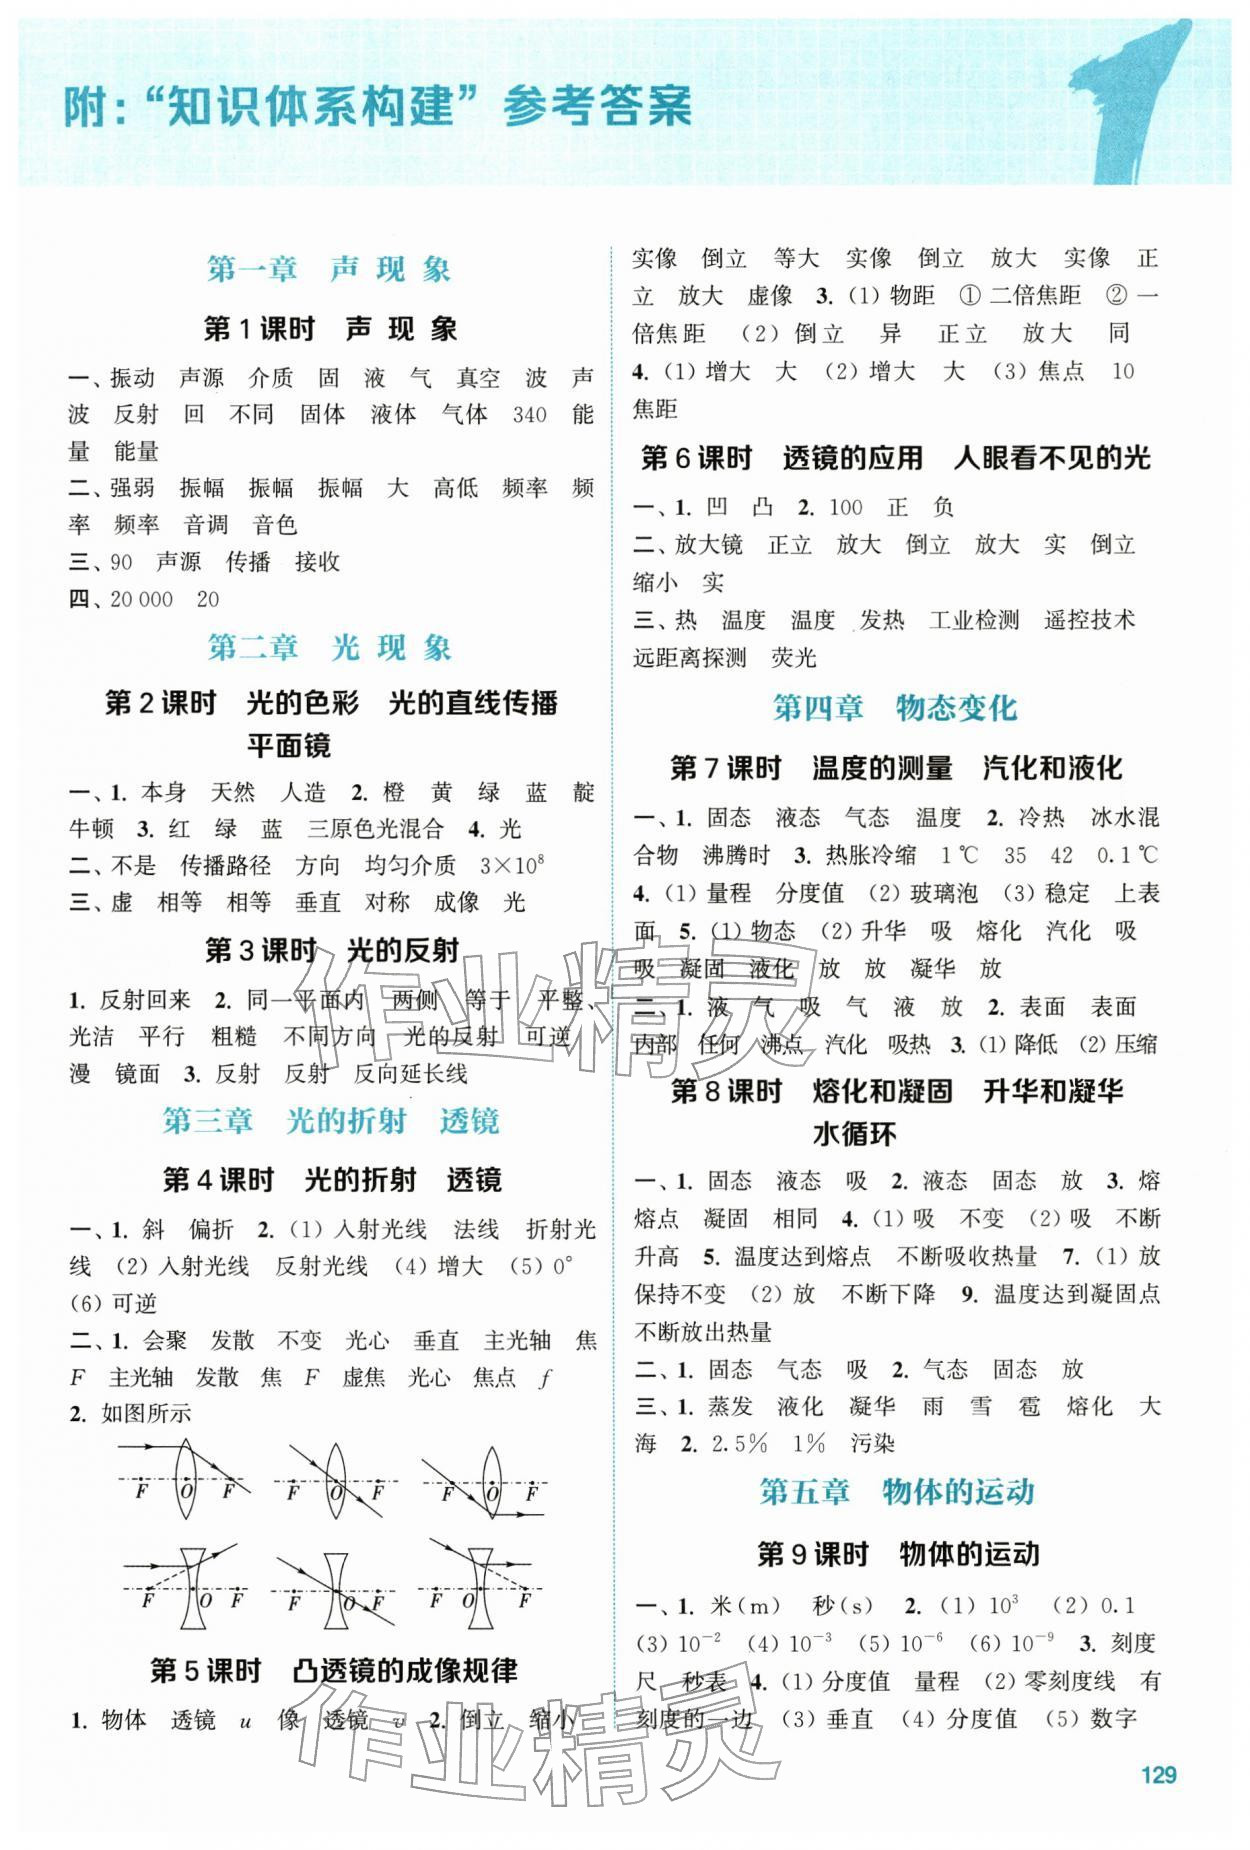 附：“知识体系构建”参考答案
第一章 声 现 象
第1课时 声 现 象
一、振动 声源 介质 固 液 气 真空 波 声
波 反射 回 不同 固体 液体 气体 340 能
量 能量
二、强弱 振幅 振幅 振幅 大 高低 频率 频
率 频率 音调 音色
三、90 声源 传播 接收
四、20 000 20
第二章 光 现 象
第2课时 光的色彩 光的直线传播
平面镜
一、1. 本身 天然 人造 2. 橙 黄 绿 蓝 靛
牛顿 3. 红 绿 蓝 三原色光混合 4. 光
二、不是 传播路径 方向 均匀介质 3×10⁸
三、虚 相等 相等 垂直 对称 成像 光
第3课时 光的反射
1. 反射回来 2. 同一平面内 两侧 等于 平整、
光洁 平行 粗糙 不同方向 光的反射 可逆
漫 镜面 3. 反射 反射 反向延长线
第三章 光的折射 透镜
第4课时 光的折射 透镜
一、1. 斜 偏折 2. (1)入射光线 法线 折射光
线 (2)入射光线 反射光线 (4)增大 (5)0°
(6)可逆
二、1. 会聚 发散 不变 光心 垂直 主光轴 焦
F 主光轴 发散 焦 F 虚焦 光心 焦点 f
2. 如图所示
F O F F O F F O F
F O F F O F F O F
第5课时 凸透镜的成像规律
1. 物体 透镜 u 像 透镜 v 2. 倒立 缩小
实像 倒立 等大 实像 倒立 放大 实像 正
立 放大 虚像 3. (1)物距 ①二倍焦距 ②一
倍焦距 (2)倒立 异 正立 放大 同
4. (1)增大 大 (2)增大 大 (3)焦点 10
焦距
第6课时 透镜的应用 人眼看不见的光
一、1. 凹 凸 2. 100 正 负
二、放大镜 正立 放大 倒立 放大 实 倒立
缩小 实
三、热 温度 温度 发热 工业检测 遥控技术
远距离探测 荧光
第四章 物态变化
第7课时 温度的测量 汽化和液化
一、1. 固态 液态 气态 温度 2. 冷热 冰水混
合物 沸腾时 3. 热胀冷缩 1℃ 35 42 0.1℃
4. (1)量程 分度值 (2)玻璃泡 (3)稳定 上表
面 5. (1)物态 (2)升华 吸 熔化 汽化 吸
吸 凝固 液化 放 放 凝华 放
二、1. 液 气 吸 气 液 放 2. 表面 表面
内部 任何 沸点 汽化 吸热 3. (1)降低 (2)压缩
第8课时 熔化和凝固 升华和凝华
水循环
一、1. 固态 液态 吸 2. 液态 固态 放 3. 熔
熔点 凝固 相同 4. (1)吸 不变 (2)吸 不断
升高 5. 温度达到熔点 不断吸收热量 7. (1)放
保持不变 (2)放 不断下降 9. 温度达到凝固点
不断放出热量
二、1. 固态 气态 吸 2. 气态 固态 放
三、1. 蒸发 液化 凝华 雨 雪 雹 熔化 大
海 2. 2.5% 1% 污染
第五章 物体的运动
第9课时 物体的运动
一、1. 米(m) 秒(s) 2. (1)10³ (2)0.1
(3)10⁻² (4)10⁻³ (5)10⁻⁶ (6)10⁻⁹ 3. 刻度
尺 秒表 4. (1)分度值 量程 (2)零刻度线 有
刻度的一边 (3)垂直 (4)分度值 (5)数字
129
作业精灵
作业精灵